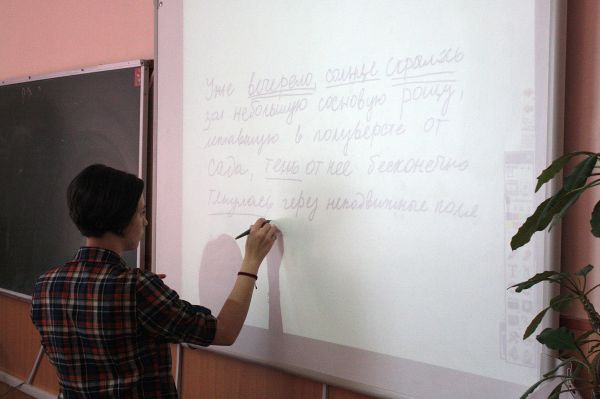 Уже вечерело, солнце скрылось
за небольшую сосновую рощу,
лежавшую в полуверсте от
сада, тень от нее бесконечно
тянулась через неподвижные поля